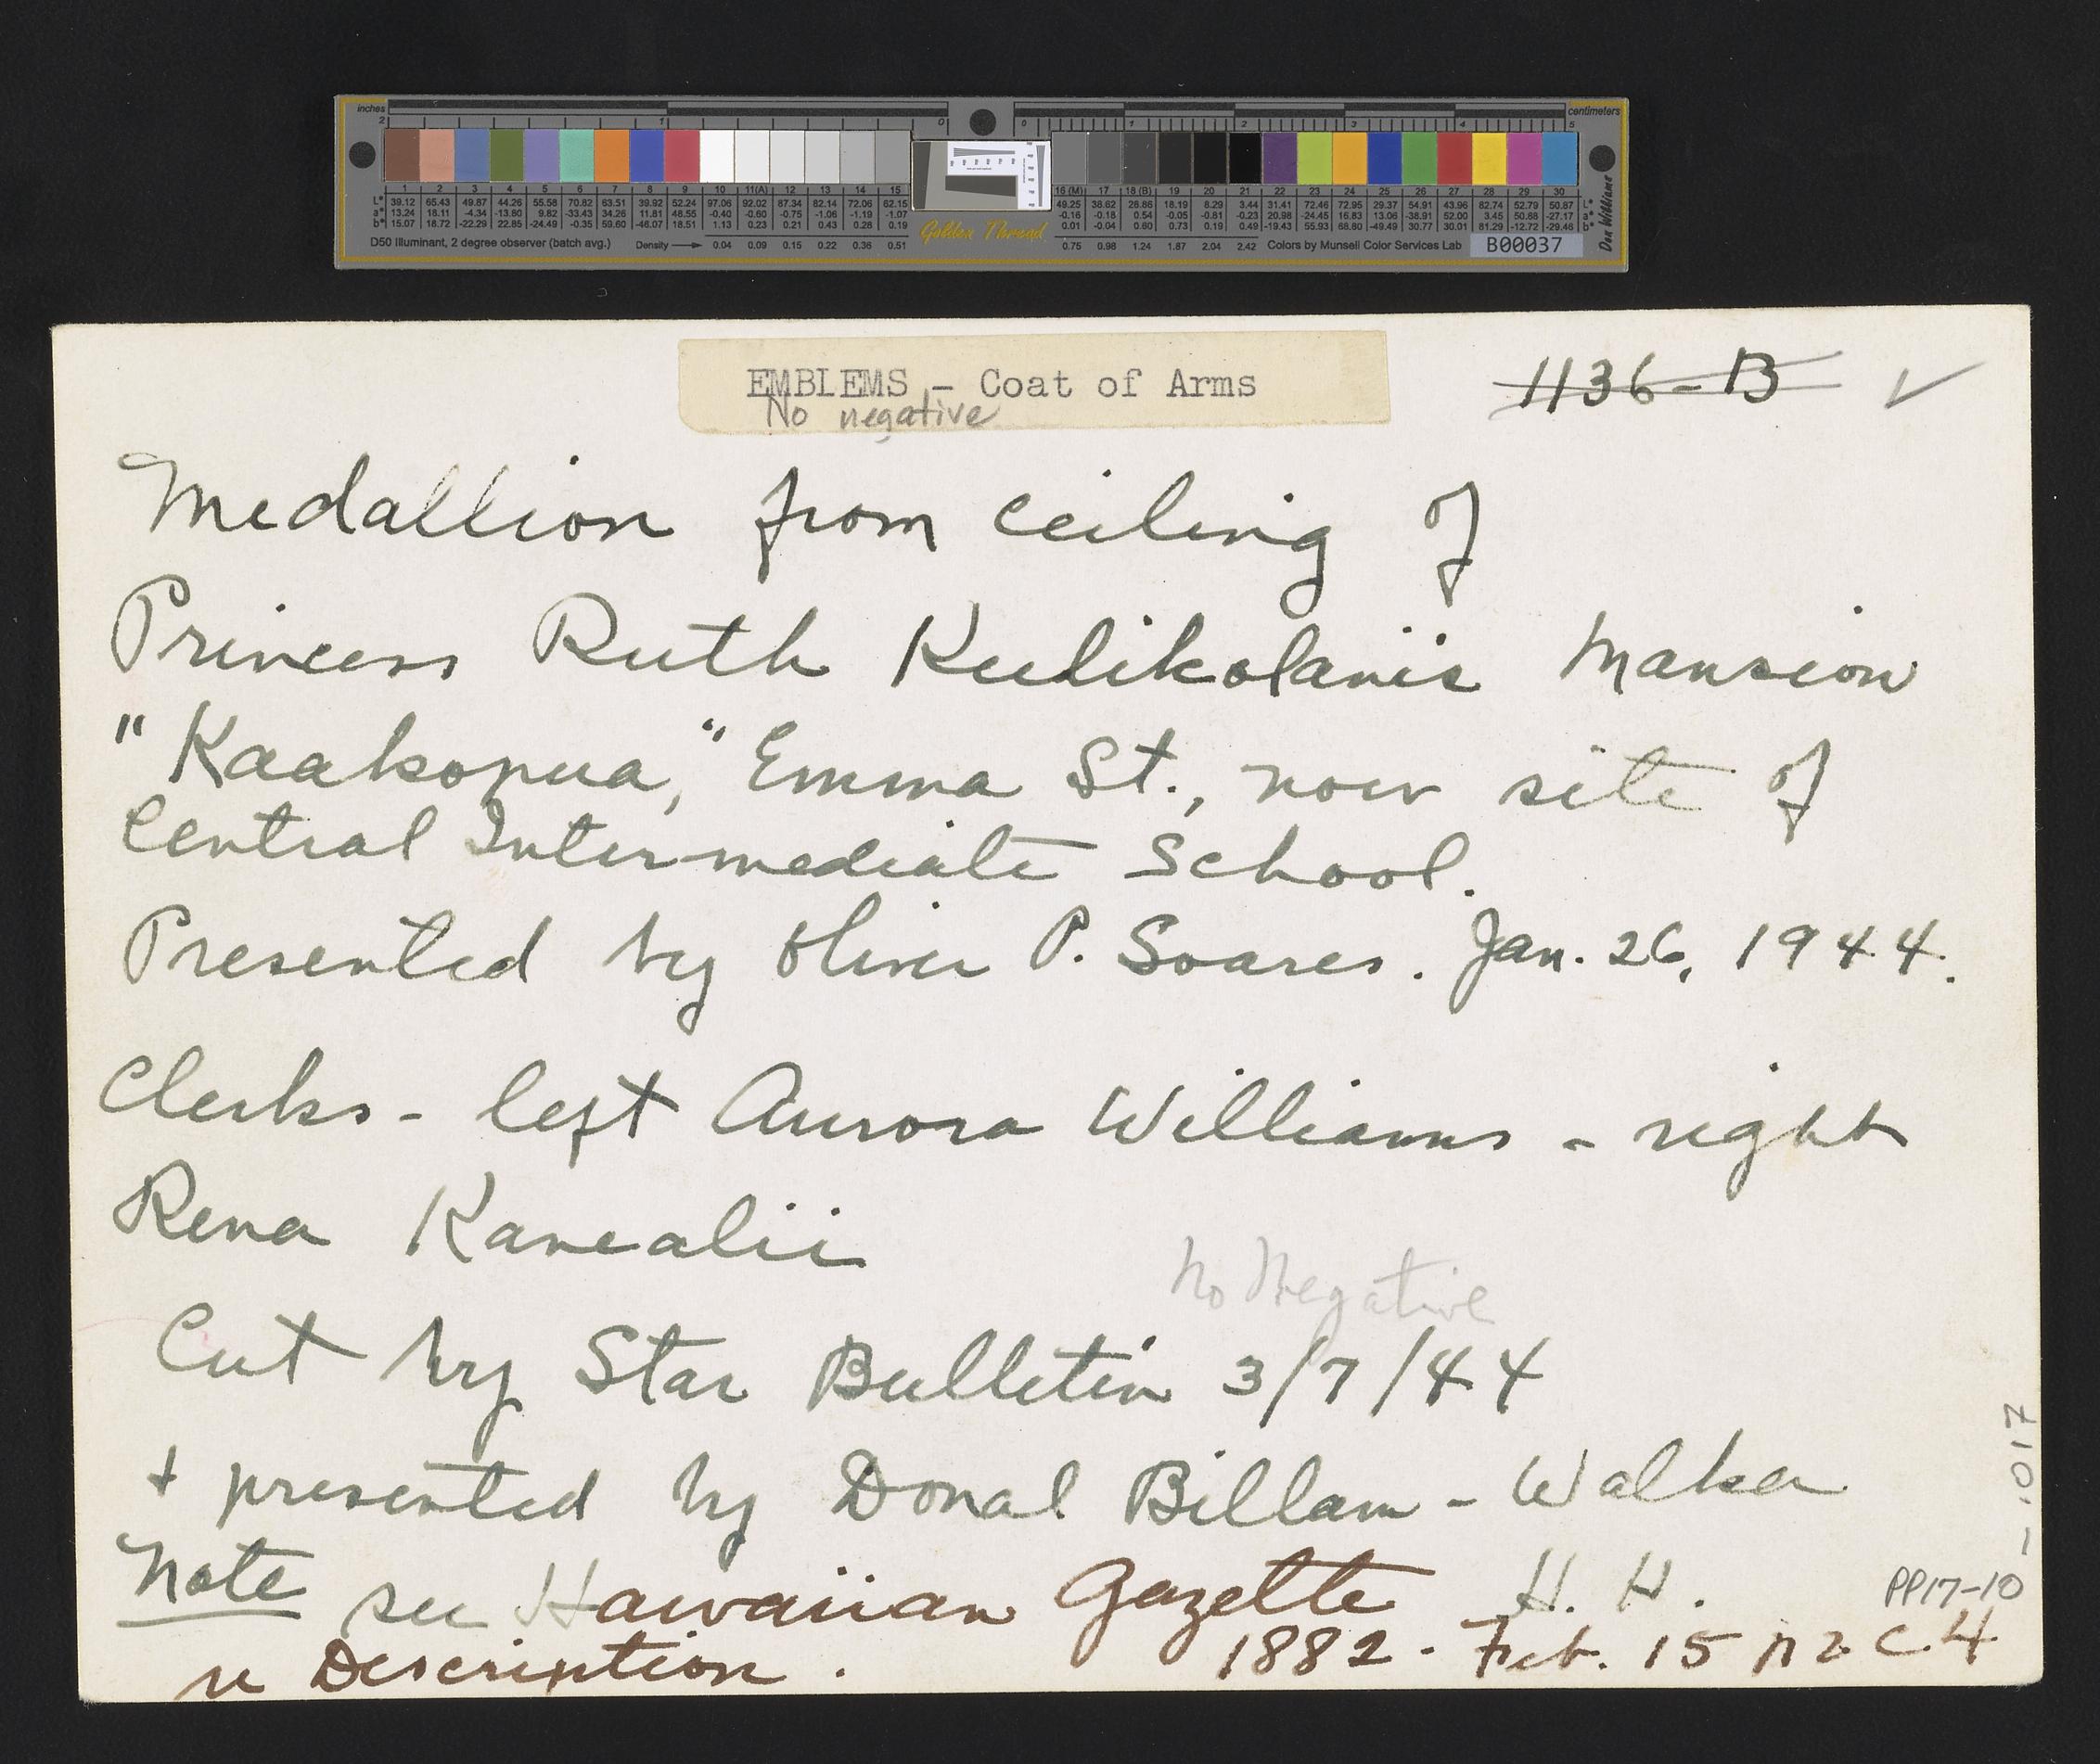 inches
centimeters
2 1 0 0 1 2 3 4 5
1 2 3 4 5 6 7 8 9 10 11(A) 12 13 14 15 16 (M) 17 18 (B) 19 20 21 22 23 24 25 26 27 28 29 30
L* 39.12 65.43 49.87 44.26 55.58 70.82 63.51 39.92 52.24 97.06 92.02 87.34 82.14 72.06 62.15 49.25 38.62 28.86 18.19 8.29 3.44 31.41 72.46 72.95 29.37 54.91 43.96 82.74 52.79 50.87 L*
a* 13.24 18.11 -4.34 -13.80 9.82 -33.43 34.26 11.81 48.55 -0.40 -0.60 -0.75 -1.06 -1.19 -1.07 -0.16 -0.18 0.54 -0.05 -0.81 -0.23 20.98 -24.45 16.83 13.06 -38.91 52.00 3.45 50.88 -27.17 a*
b* 15.07 18.72 -22.29 22.85 -24.49 -0.35 59.60 -46.07 18.51 1.13 0.23 0.21 0.43 0.28 0.19 0.01 -0.04 0.60 0.73 0.19 0.49 -19.43 55.93 68.80 -49.49 30.77 30.01 81.29 -12.72 -29.46 b*
D50 Illuminant, 2 degree observer (batch avg.) Density 0.04 0.09 0.15 0.22 0.36 0.51 Golden Thread 0.75 0.98 1.24 1.87 2.04 2.42 Colors by Munsell Color Services Lab B00037
Don Williams
EMBLEMS - Coat of Arms
No negative
1136-B
Medallion from ceiling of
Princess Ruth Keelikolani's Mansion
"Kaakopua," Emma St., now site of
Central Intermediate School.
Presented by Oliver P. Soares. Jan. 26, 1944.
Clerks - left Aurora Williams - right
Rena Kanealii
No Negative
Cut by Star Bulletin 3/7/44
+ presented by Donal Billam-Walker
Note see Hawaiian Gazette H. H.
PP17-10-.017
1882. Feb. 15 p 2 c 4
Description.